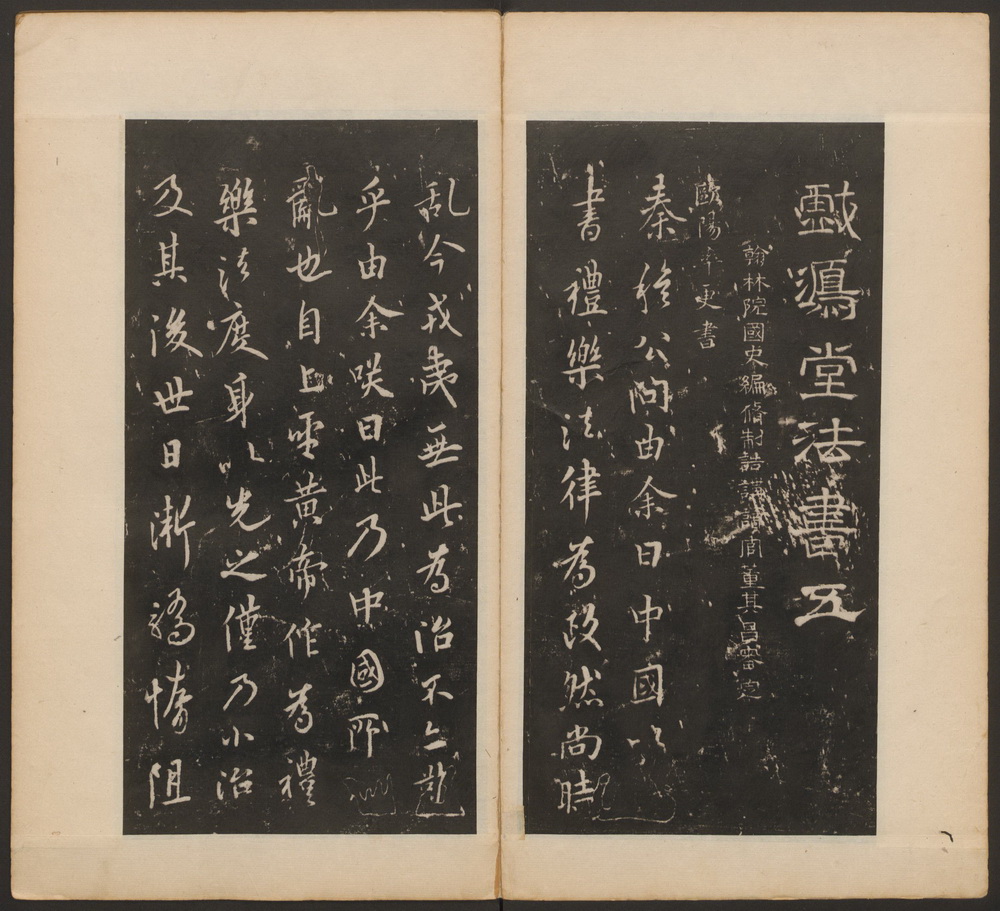 戲鴻堂法書五
翰林院國史編脩制誥講讀官董其昌審定
歐陽率更書
秦穆公問由余曰中國以
書禮樂法律為政然尚時
乱今戎夷無此為治不亦難
乎由余咲曰此乃中國所以
亂也自上聖黃帝作為禮
樂法度身以先之僅乃小治
及其後世日漸驕惰阻